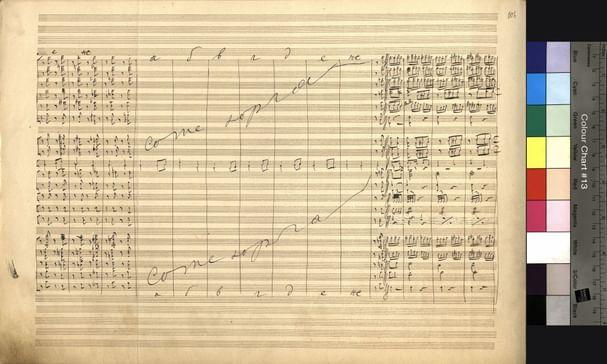 е же
а б в г д е же
Come sopra
Come sopra
а б в г д е же
Colour Chart #13
Blue
Cyan
Green
Yellow
Red
Magenta
White
3/Color
Black